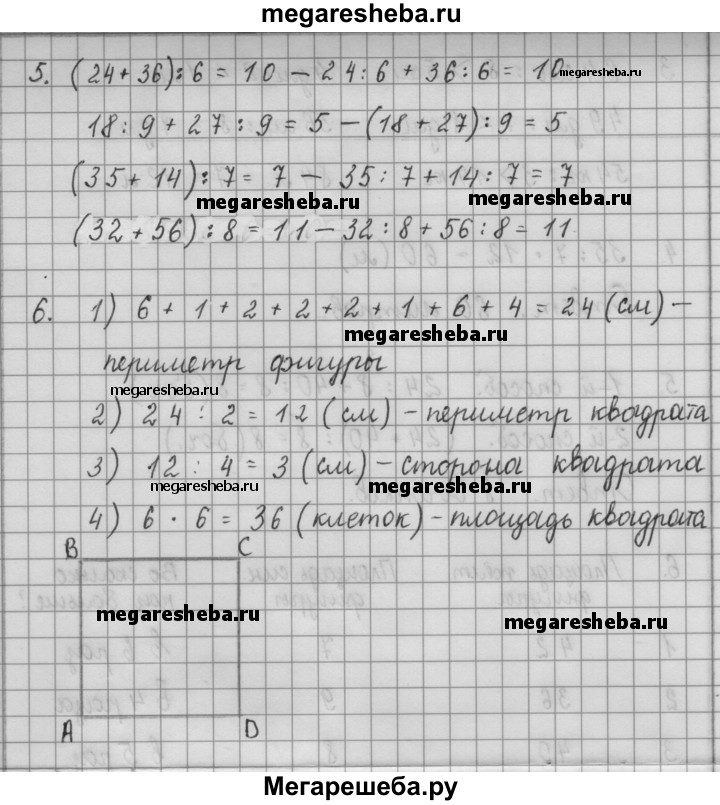 megaresheba.ru
5. (24+36):6 = 10 – 24:6 + 36:6 = 10
megaresheba.ru
18:9 + 27:9 = 5 – (18+27):9 = 5
(35+14):7 = 7 – 35:7 + 14:7 = 7
megaresheba.ru megaresheba.ru
(32+56):8 = 11 – 32:8 + 56:8 = 11
6. 1) 6 + 1 + 2 + 2 + 2 + 1 + 6 + 4 = 24 (см) –
megaresheba.ru
периметр фигуры
megaresheba.ru
2) 24 : 2 = 12 (см) – периметр квадрата
3) 12 : 4 = 3 (см) – сторона квадрата
megaresheba.ru megaresheba.ru
4) 6 · 6 = 36 (клеток) – площадь квадрата
B C
megaresheba.ru megaresheba.ru
A D
Мегарешеба.ру